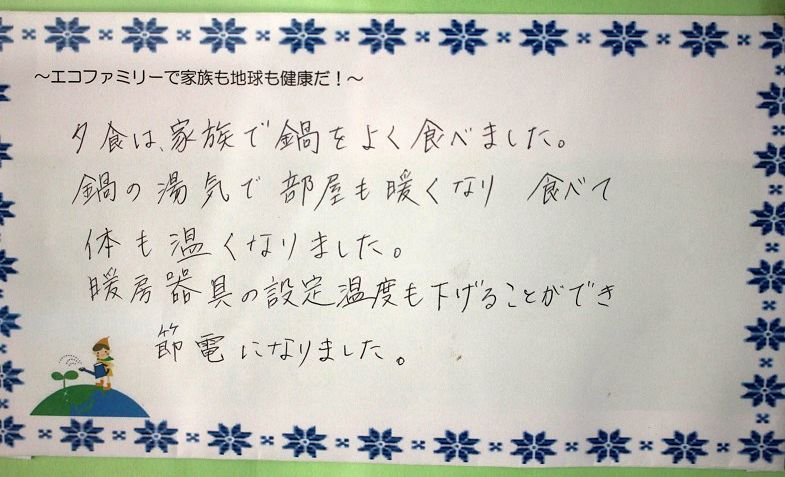 ～エコファミリーで家族も地球も健康だ！～
夕食は、家族で鍋をよく食べました。
鍋の湯気で部屋も暖くなり 食べて
体も温くなりました。
暖房器具の設定温度も下げることができ
節電になりました。